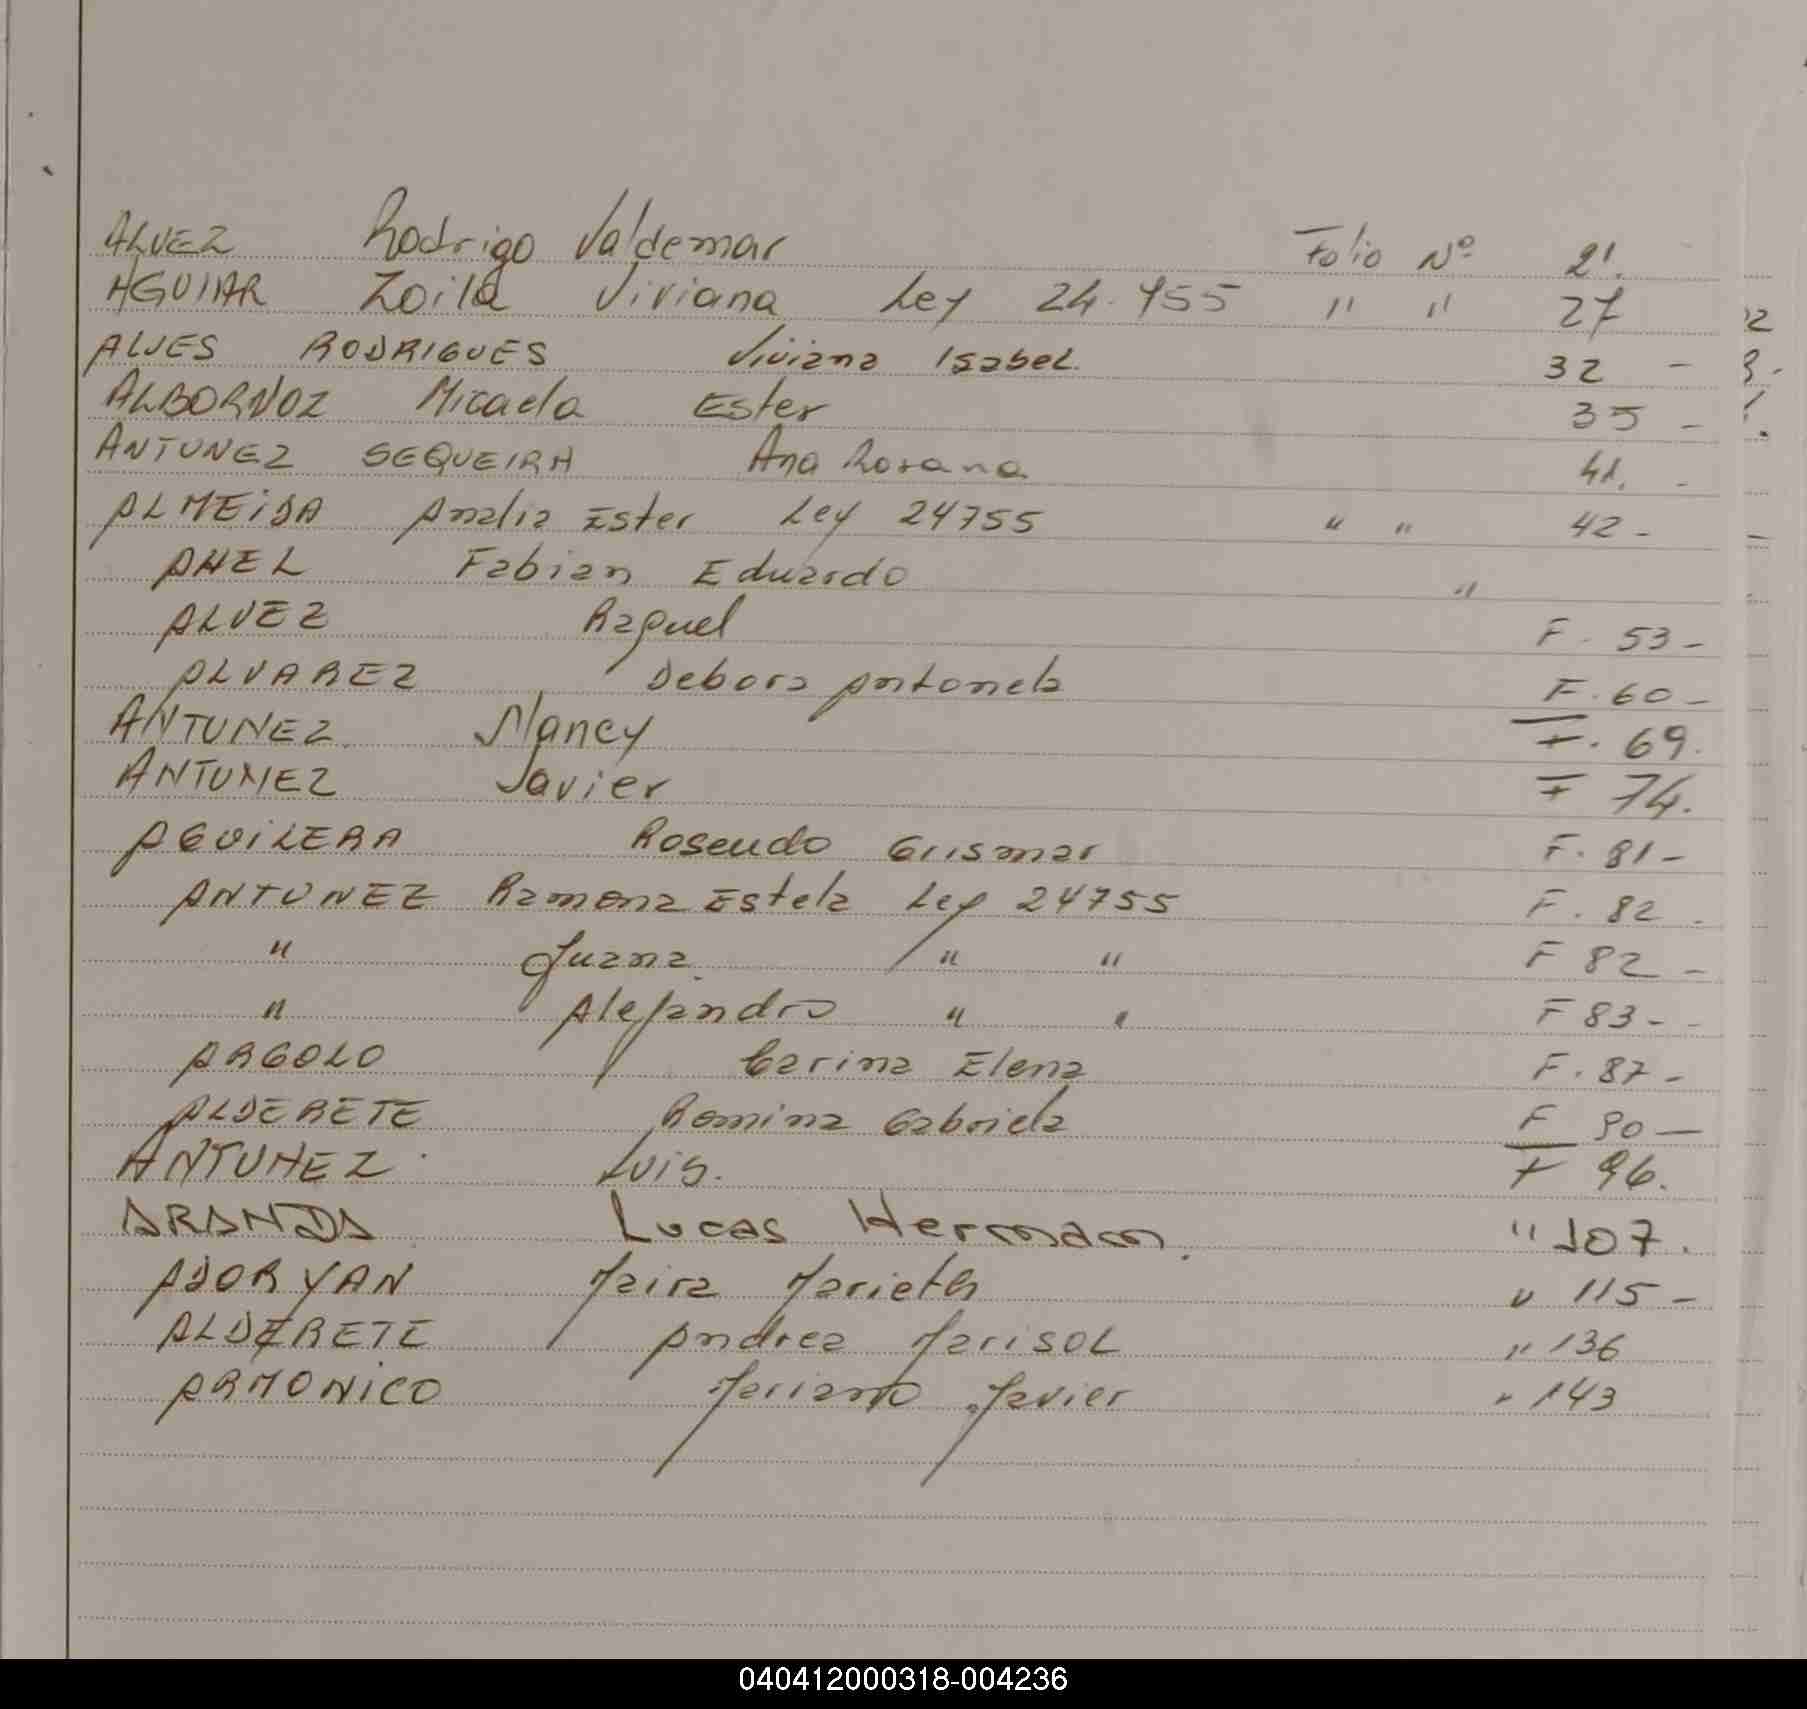 ALVEZ Rodrigo Valdemar Folio Nº 21.
AGUIAR Zoila Viviana Ley 24.755 " " 27
ALVES RODRIGUES Viviana Isabel. 32 -
ALBORNOZ Micaela Ester 35 -
ANTUNEZ SEQUEIRA Ana Rosana 41. -
ALMEIDA Analia Ester Ley 24755 " " 42 -
Fabian Eduardo "
ALVEZ Raquel F. 53 -
ALVAREZ Debora Antonela F. 60 -
ANTUNEZ Nancy F. 69.
ANTUNEZ Javier F 74.
AGUILERA Rosendo Grismar F. 81 -
ANTUNEZ Ramona Estela Ley 24755 F. 82 -
" Juana. " " F 82 -
" Alejandro " " F 83 - -
ARGOLO Carina Elena F. 87 -
ALDERETE Romina Gabriela F 90 —
ANTUNEZ Luis. F 96.
ARANDA Lucas Hernnan. " 107.
ADORYAN Maira Marieth " 115 -
ALDERETE Andrea Marisol " 136
ARMONICO Mariano Javier " 143
040412000318-004236